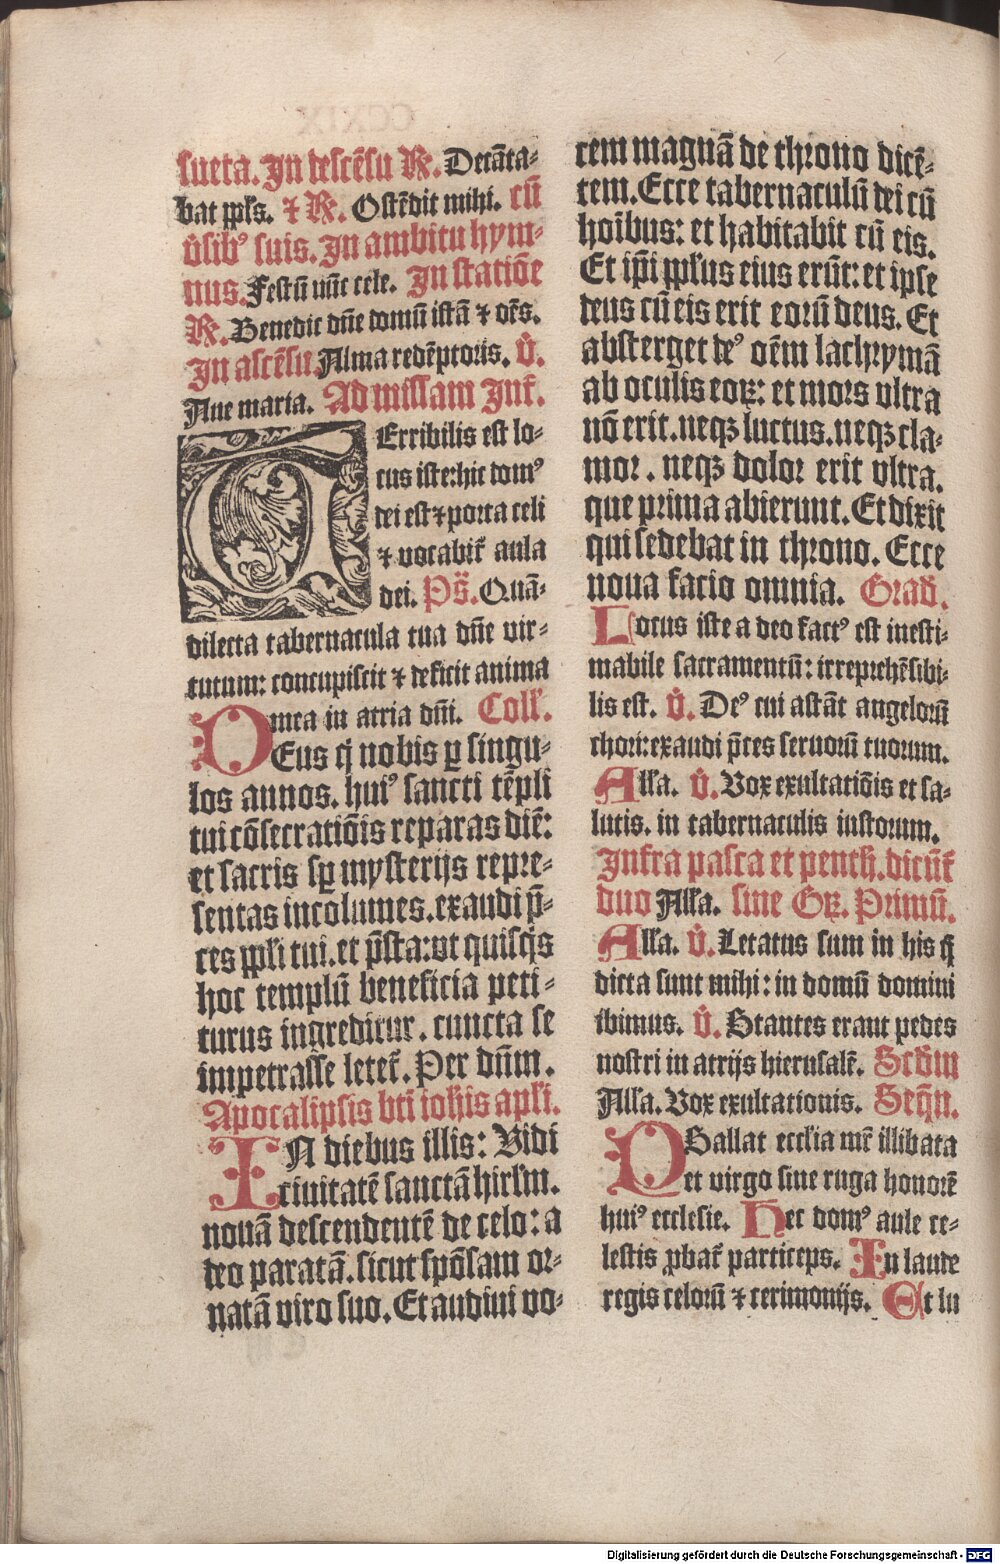 sueta. In descēsu ℟. Decāta-
bat ppl's. ⁊ ℟. Ostēdit mihi. cū
v̓sibꝰ suis. In ambitu hym-
nus. Festū nūc cele. In statiōe
℟. Benedic dn̄e domū istā ⁊ oēs.
In ascēsu. Alma redēptoris. ℣.
Aue maria. Ad missam Int̄.
TErribilis est lo-
cus iste: hic domꝰ
dei est ⁊ porta celi
⁊ vocabit̄ aula
dei. Ps̄. Quā-
dilecta tabernacula tua dn̄e vir-
tutum: concupiscit ⁊ deficit anima
mea in atria dn̄i. Coll'.
DEus q̄ nobis ꝑ singu-
los annos. huiꝰ sancti tēpli
tui cōsecratiōis reparas diē:
et sacris sꝑ mysterijs repre-
sentas incolumes. exaudi p̄-
ces ppl'i tui. et p̄sta: vt quisq̇s
hoc templū beneficia peti-
turus ingreditur. cuncta se
impetrasse letet̄. Per dn̄m.
Apocalipsis bt̄i ioh̄is apl'i.
IN diebus illis: Vidi
ciuitatē sanctā hirl'm.
nouā descendentē de celo: a
deo paratā. sicut spōsam or-
natā viro suo. Et audiui vo-
CCXIX
cem magnā de throno dicē-
tem. Ecce tabernaculū dei cū
hoībus: et habitabit cū eis.
Et ip̄i ppl'us eius erūt: et ipse
deus cū eis erit eorū deus. Et
absterget deꝰ oēm lachrymā
ab oculis eoꝝ: et mors vltra
nō erit. neqꝫ luctus. neqꝫ cla-
mor. neqꝫ dolor erit vltra.
que prima abierunt. Et dixit
qui sedebat in throno. Ecce
noua facio omnia. Grad̄.
Locus iste a deo factꝰ est inesti-
mabile sacramentū: irreprehēsibi-
lis est. ℣. Deꝰ cui astāt angelorū
chori: exaudi p̄ces seruorū tuorum.
All'a. ℣. Vox exultatiōis et sa-
lutis. in tabernaculis iustorum.
Infra pasca et penth. dicūt̄
duo All'a. sine Gꝝ. Primū.
All'a. ℣. Letatus sum in his q̄
dicta sunt mihi: in domū domini
ibimus. ℣. Stantes erant pedes
nostri in atrijs hierusalē. Scd̄m
All'a. Vox exultationis. Seq̄n.
PSallat eccl'ia mr̄ illibata
et virgo sine ruga honorē
huiꝰ ecclesie. Hec domꝰ aule ce-
lestis ꝓbat̄ particeps. In laude
regis celorū ⁊ cerimonijs. Et lu
Digitalisierung gefördert durch die Deutsche Forschungsgemeinschaft - DFG